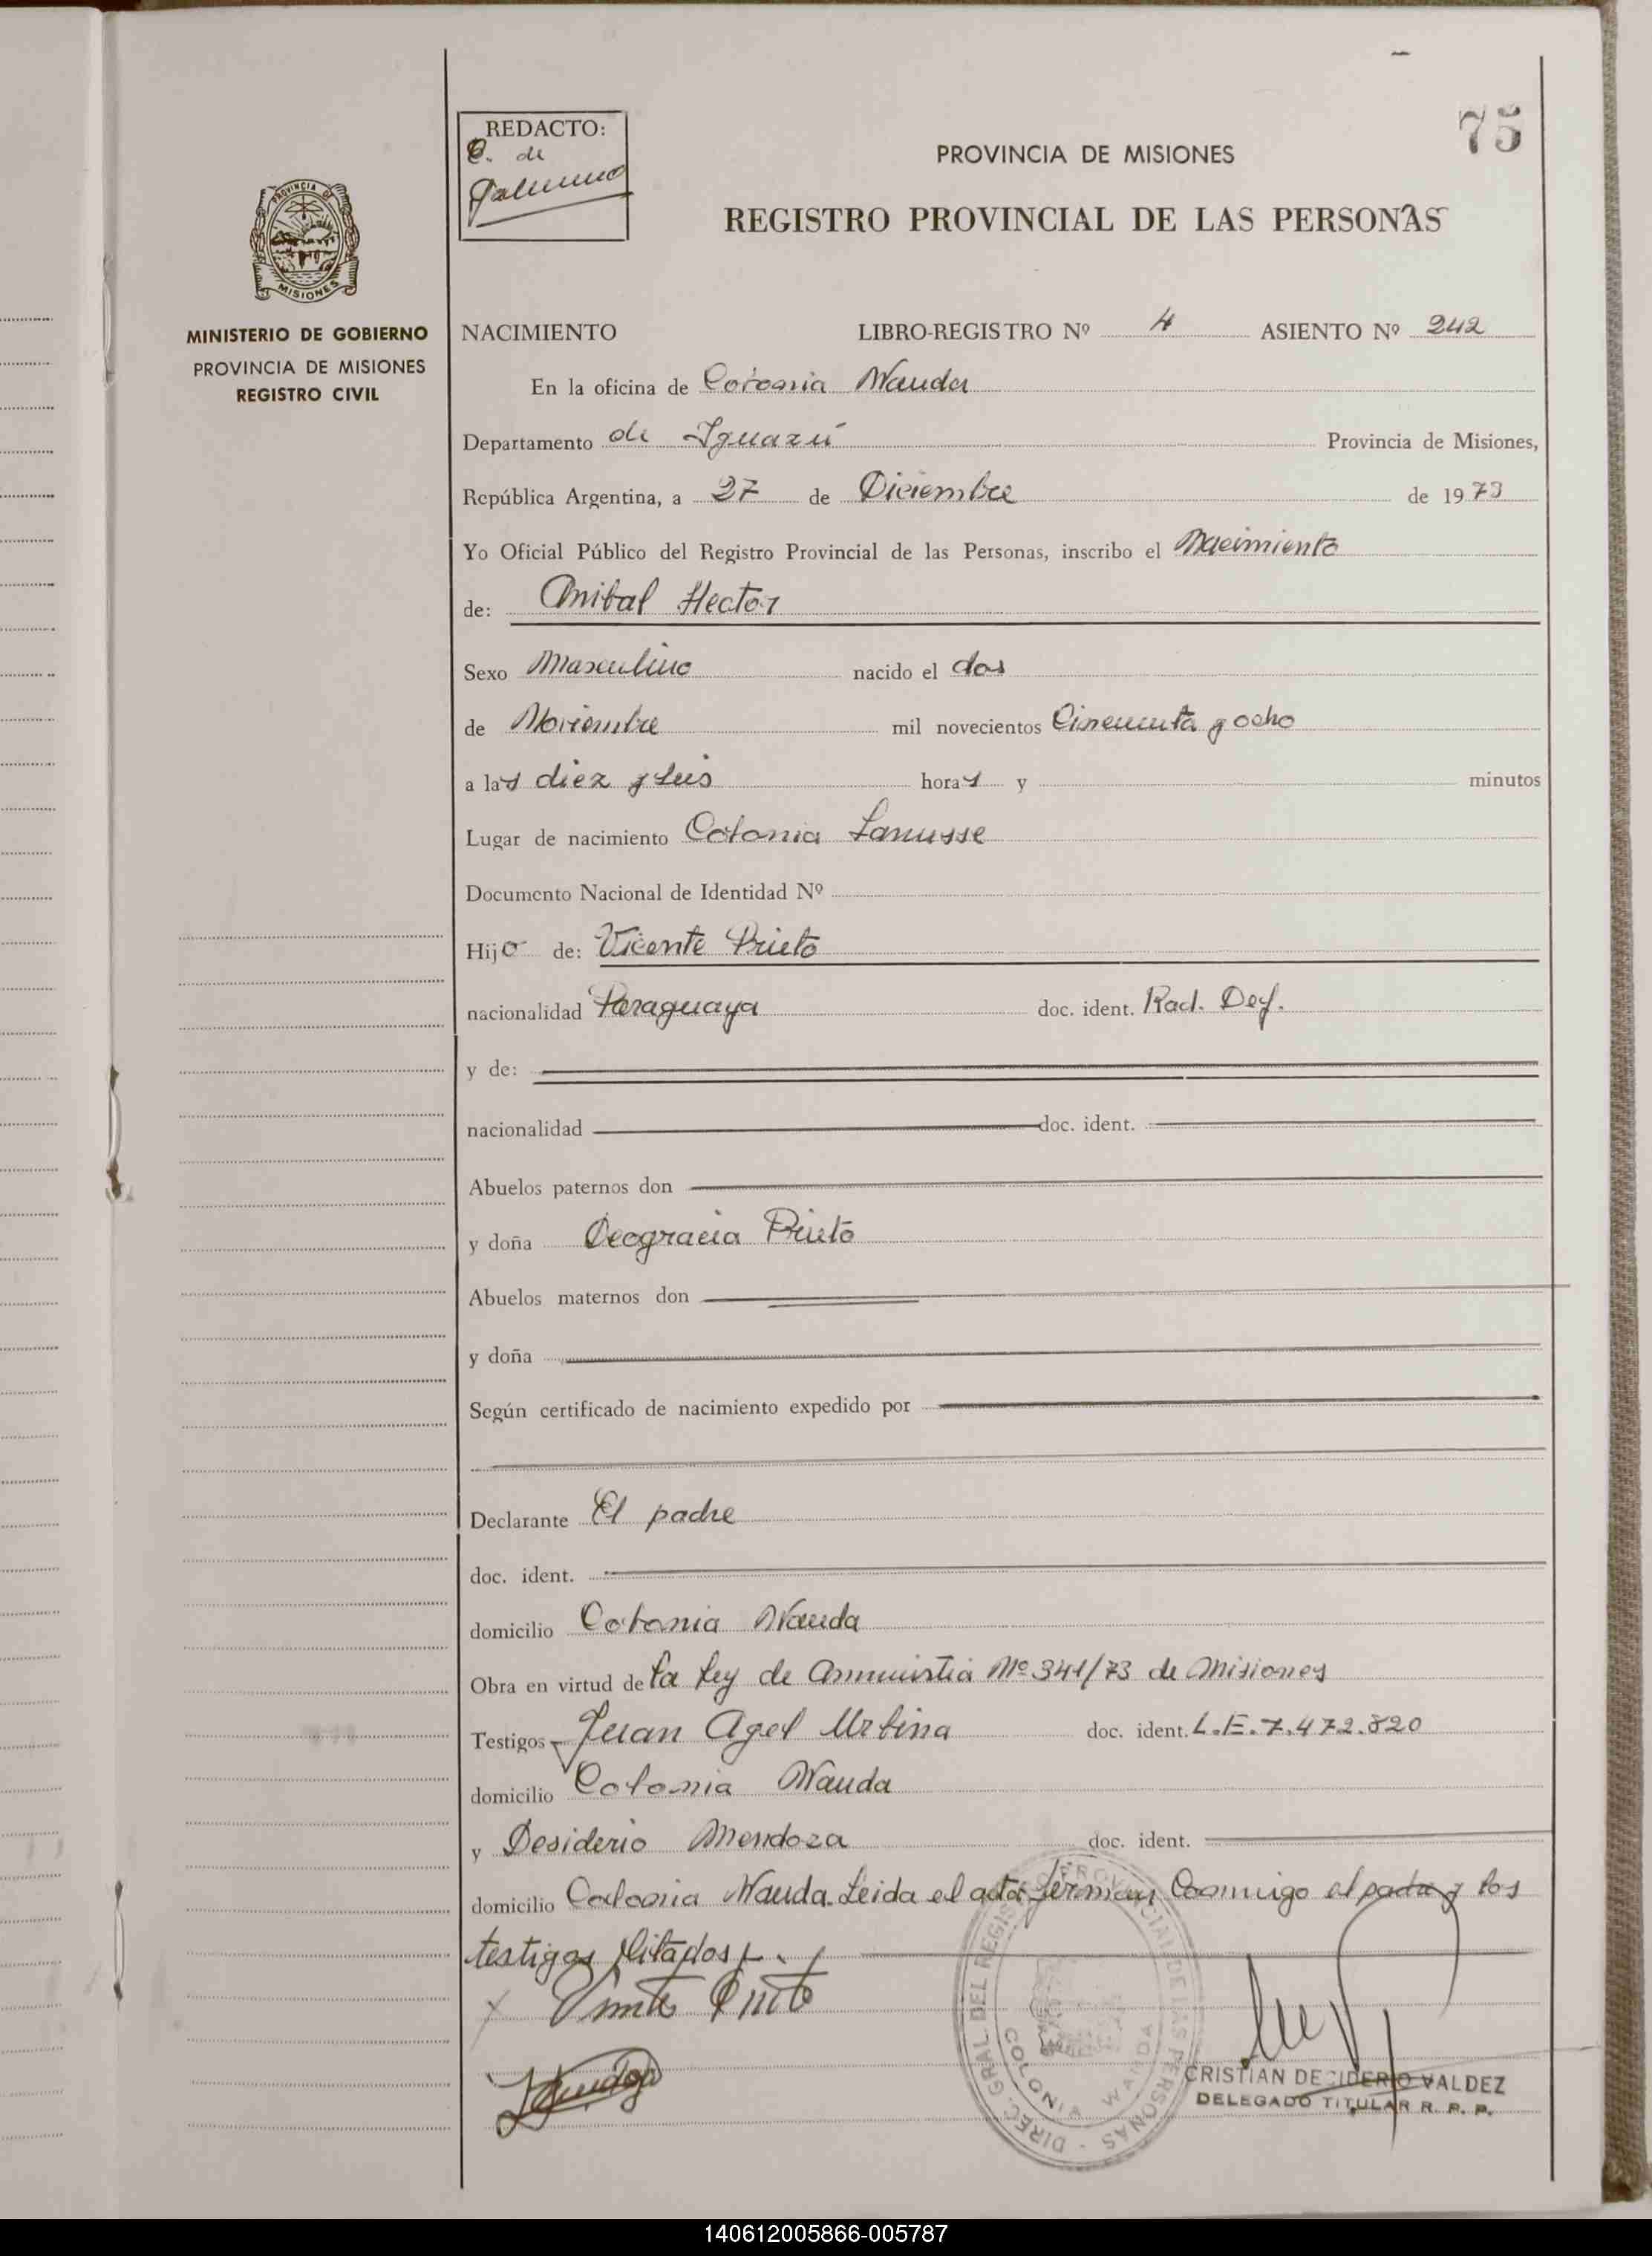 75
REDACTO:
C. de
PROVINCIA DE MISIONES
REGISTRO PROVINCIAL DE LAS PERSONAS
PROVINCIA DE
MISIONES
MINISTERIO DE GOBIERNO
PROVINCIA DE MISIONES
REGISTRO CIVIL
NACIMIENTO LIBRO-REGISTRO Nº 4 ASIENTO Nº 242
En la oficina de Colonia Wanda
Departamento de Iguazú Provincia de Misiones,
República Argentina, a 27 de Diciembre de 1973
Yo Oficial Público del Registro Provincial de las Personas, inscribo el Nacimiento
de: Anibal Hector
Sexo Masculino nacido el dos
de Noviembre mil novecientos Cincuenta y ocho
a las diez y seis horas y minutos
Lugar de nacimiento Colonia Lanusse
Documento Nacional de Identidad Nº
Hijo de: Vicente Prieto
nacionalidad Paraguaya doc. ident. Rad. Def.
y de:
nacionalidad doc. ident.
Abuelos paternos don
y doña Deogracia Prieto
Abuelos maternos don
y doña
Según certificado de nacimiento expedido por
Declarante El padre
doc. ident.
domicilio Colonia Wanda
Obra en virtud de la Ley de Amnistia Nº 341/73 de Misiones
Testigos Juan Agel Urbina doc. ident. L.E. 7.472.820
domicilio Colonia Wanda
y Desiderio Mendoza doc. ident.
domicilio Colonia Wanda. Leida el acta firman Conmigo el padre y los
testigos citados
Vicente Prieto
DIREC. GRAL. DEL REGISTRO PROVINCIAL DE LAS PERSONAS
COLONIA WANDA
CRISTIAN DECIDERIO VALDEZ
DELEGADO TITULAR R. P. P.
140612005866-005787